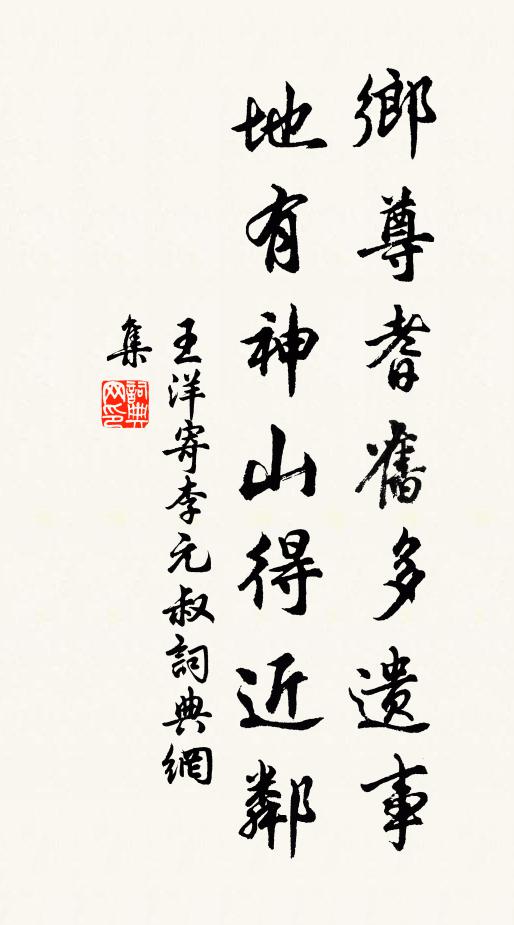 鄉尊耆舊多遺事
地有神山得近鄰
王洋寄李元叔詞典網
集
詞典網印